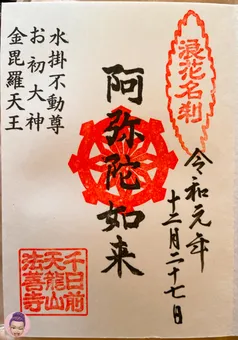 浪花名刹
令和元年
十二月二十七日
阿弥陀如来
水掛不動尊
お初大神
金毘羅天王
千日前
天龍山
法善寺